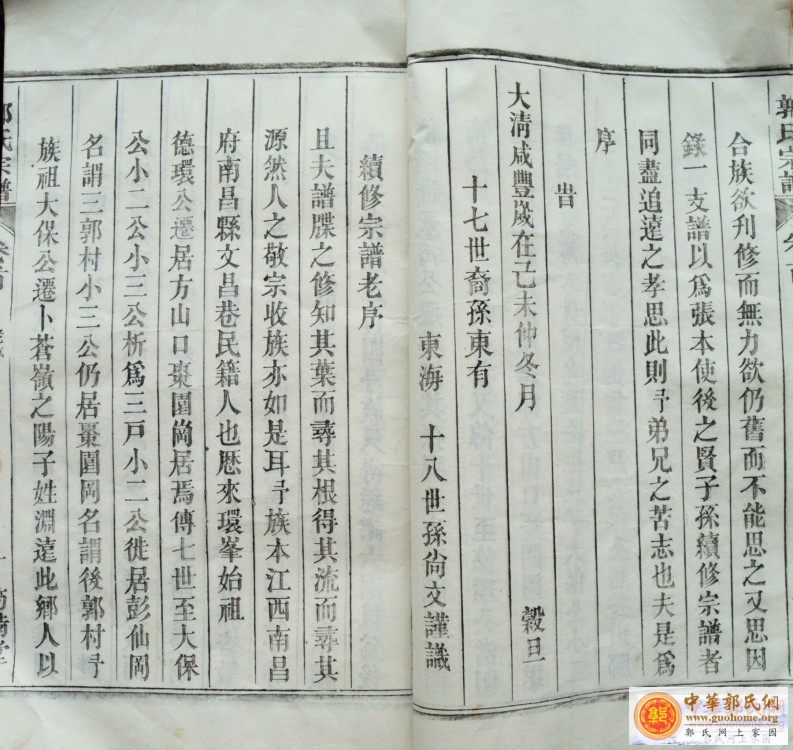 郭氏宗譜
合族欲刋修而無力欲仍舊而不能思之又思因
錄一支譜以爲張本使後之賢子孫續修宗譜者
同盡追遠之孝思此則予弟兄之苦志也夫是爲
序
旹
大清咸豐嵗在己未仲冬月 穀旦
十七世裔孫東有
東海 十八世孫尙文謹識
續修宗譜老序
且夫譜牒之修知其葉而尋其根得其流而尋其
源然人之敬宗收族亦如是耳予族本江西南昌
府南昌縣文昌巷民籍人也厯來環峯始祖
德環公遷居方山口棗園崗居焉傳七世至大保
公小二公小三公析爲三戸小二公徙居彭仙岡
名謂三郭村小三公仍居棗園岡名謂後郭村予
族祖大保公遷卜蒼嶺之陽子姓淵遠此鄉人以
郭氏宗譜
中華郭氏網
www.guohome.org
郭氏網上家園